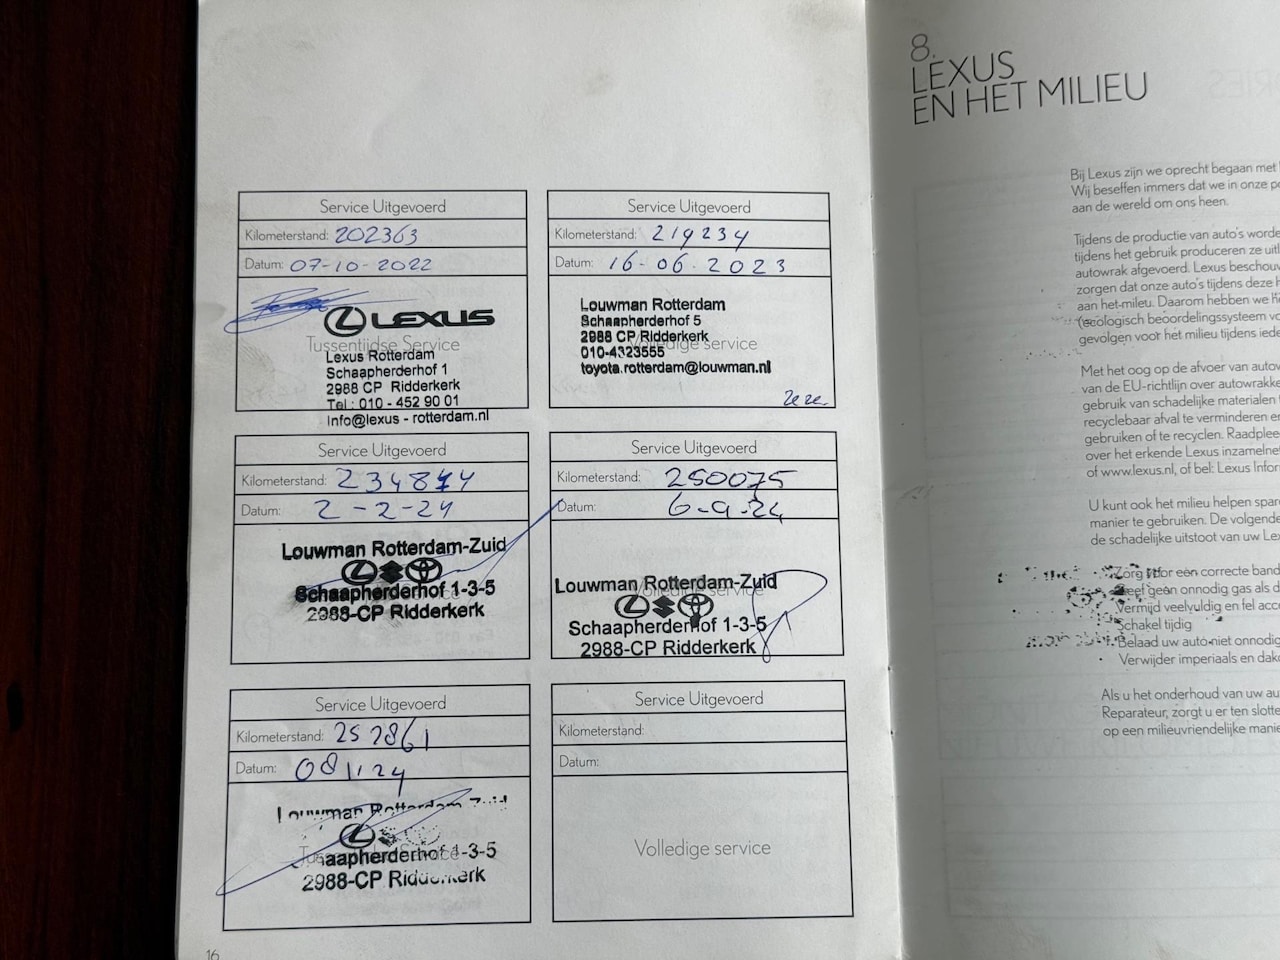 Service Uitgevoerd
Kilometerstand: 202363
Datum: 07-10-2022
LEXUS
Tussentijdse Service
Lexus Rotterdam
Schaapherderhof 1
2988 CP Ridderkerk
Tel : 010 - 452 90 01
Info@lexus - rotterdam.nl
Service Uitgevoerd
Kilometerstand: 219234
Datum: 16-06.2023
Louwman Rotterdam
Schaapherderhof 5
2988 CP Ridderkerk
Volledige service
010-4323555
toyota.rotterdam@louwman.nl
Service Uitgevoerd
Kilometerstand: 234874
Datum: 2-2-24
Louwman Rotterdam-Zuid
Schaapherderhof 1-3-5
2988-CP Ridderkerk
Service Uitgevoerd
Kilometerstand: 250075
Datum: 6-9-24
Louwman Rotterdam-Zuid
Volledige service
Schaapherderhof 1-3-5
2988-CP Ridderkerk
Service Uitgevoerd
Kilometerstand: 252861
Datum: 081124
Louwman Rotterdam Zuid
Service
aapherderhof 1-3-5
2988-CP Ridderkerk
Service Uitgevoerd
Kilometerstand:
Datum:
Volledige service
16
8.
LEXUS
EN HET MILIEU
Bij Lexus zijn we oprecht begaan met
Wij beseffen immers dat we in onze
aan de wereld om ons heen.
Tijdens de productie van auto's
tijdens het gebruik produceren ze
autowrak afgevoerd. Lexus
zorgen dat onze auto's tijdens deze
aan het mileu. Daarom hebben we
(ecologisch beoordelingssysteem
gevolgen voor het milieu tijdens
Met het oog op de afvoer van
van de EU-richtlijn over
gebruik van schadelijke materialen
recyclebaar afval te verminderen
gebruiken of te recyclen.
over het erkende Lexus
of www.lexus.nl, of bel: Lexus
U kunt ook het milieu helpen
manier te gebruiken. De
de schadelijke uitstoot van uw
Zorg voor een correcte
Geef geen onnodig gas als
Vermijd veelvuldig en fel
Schakel tijdig
Belaad uw auto niet onnodig
• Verwijder imperiaals en
Als u het onderhoud van uw
Reparateur, zorgt u er ten
op een milieuvriendelijke